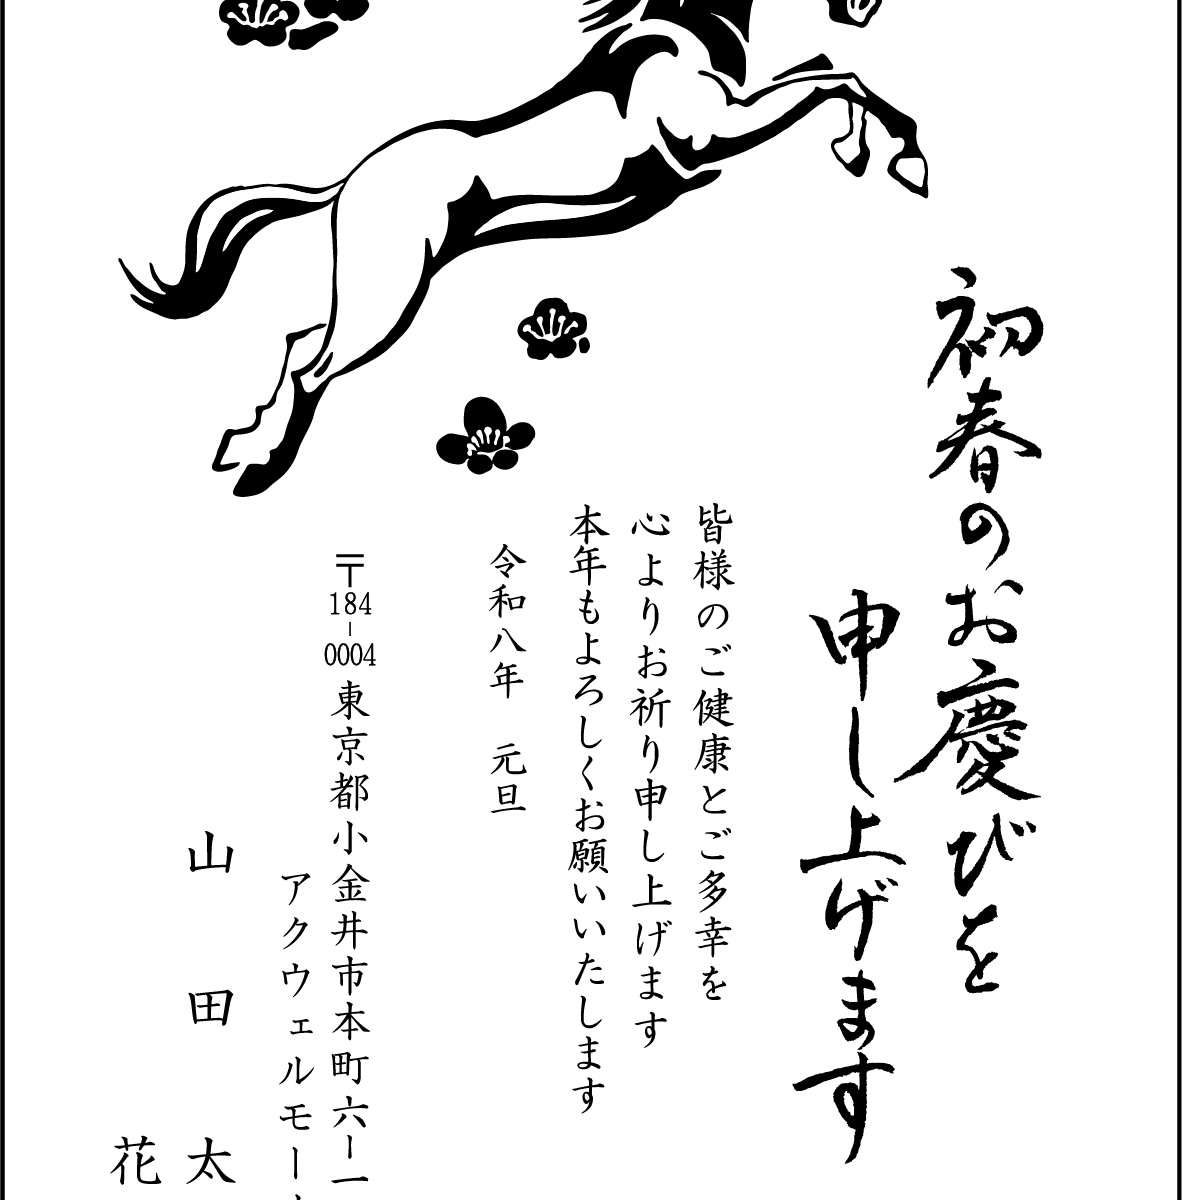 初春のお慶びを
申し上げます
皆様のご健康とご多幸を
心よりお祈り申し上げます
本年もよろしくお願いいたします
令和八年　元旦
〒184-0004 東京都小金井市本町六ー一
アクウェルモー
山田太
花